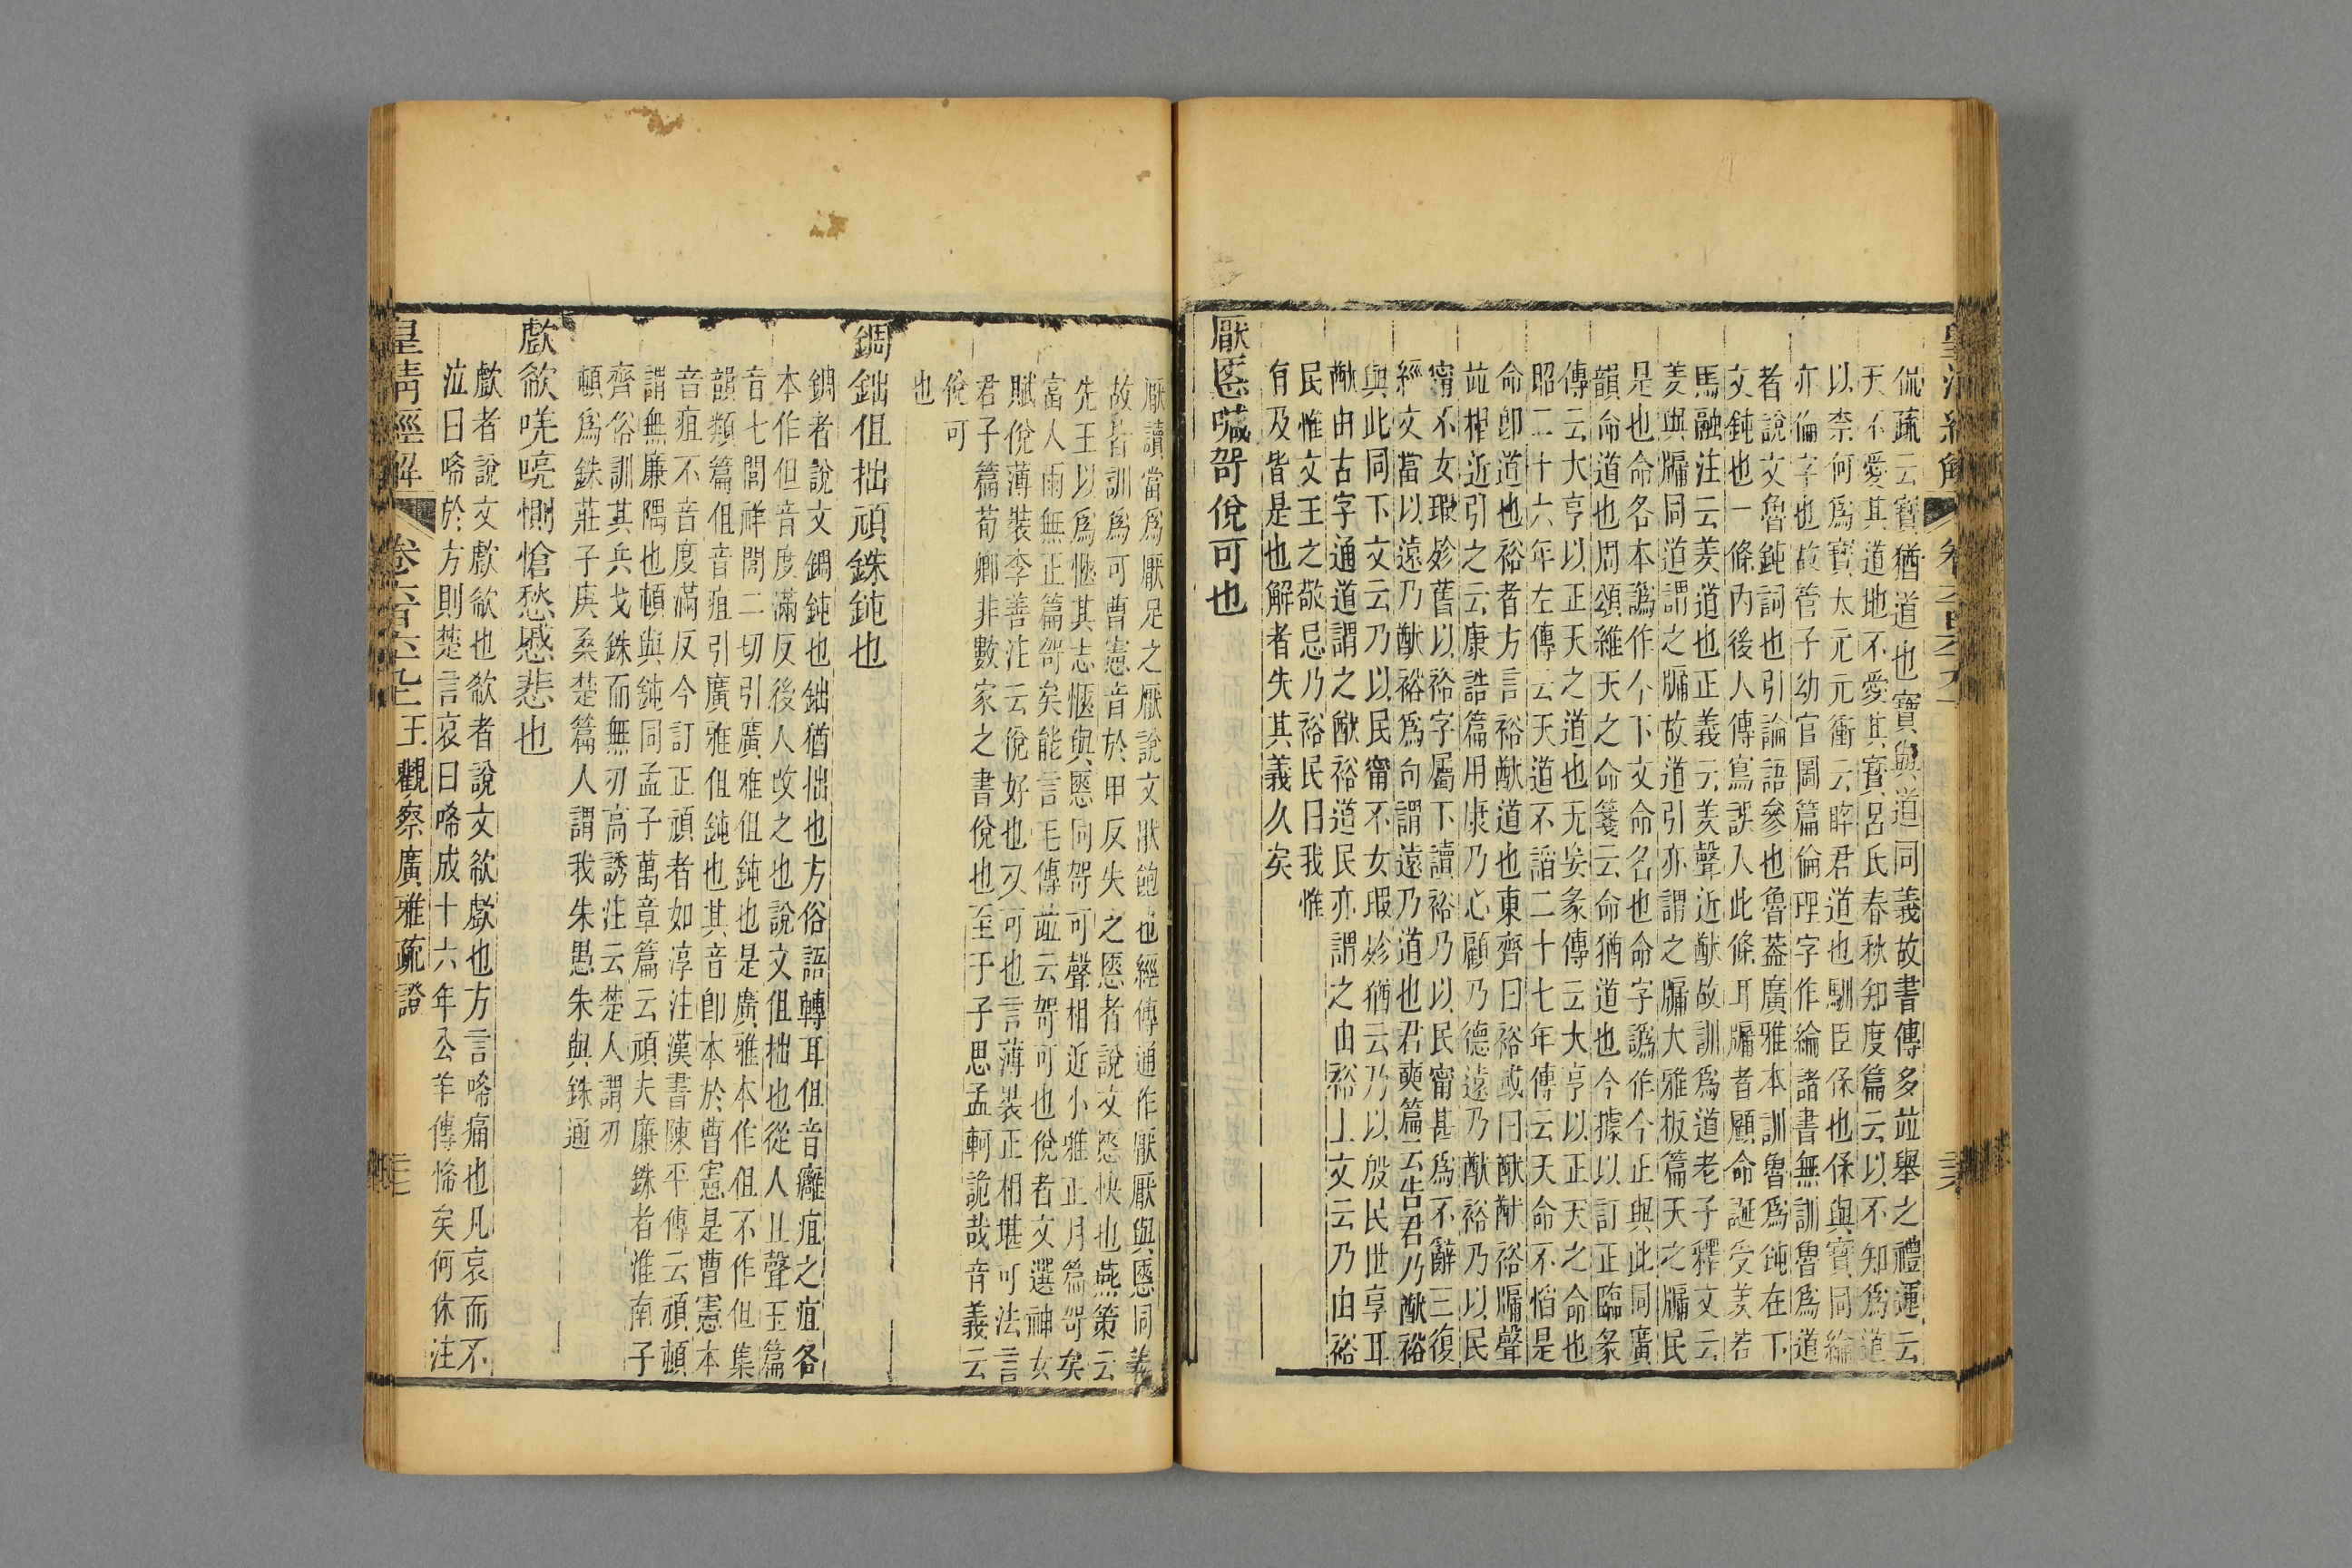 侃疏云寶猶道也寶與道同義故書傳多並舉之禮運云
天不愛其道地不愛其寶呂氏春秋知度篇云以不知爲道
以柰何爲寶太元元衝云睟君道也馴臣保也保與寶同綸
亦倫字也故管子幼官圖篇倫理字作綸諸書無訓魯爲道
者說文魯鈍詞也引論語參也魯葢廣雅本訓魯爲鈍在下
文鈍也一條內後人傳寫誤入此條耳牖者顧命誕受羑若
馬融注云羑道也正義云羑聲近猷故訓爲道老子釋文云
羑與牖同道謂之牖故道引亦謂之牖大雅板篇天之牖民
是也命各本譌作仒下文命名也命字譌作今正與此同廣
韻命道也周頌維天之命箋云命猶道也今據以訂正臨彖
傳云大亨以正天之道也无妄彖傳云大亨以正天之命也
昭二十六年左傳云天道不謟二十七年傳云天命不慆是
命卽道也裕者方言裕猷道也東齊曰裕或曰猷猷裕牖聲
並相近引之云康誥篇用康乃心顧乃德遠乃猷裕乃以民
甯不女瑕殄舊以裕字屬下讀裕乃以民甯甚爲不辭三復
經文當以遠乃猷裕爲句謂遠乃道也君奭篇云告君乃猷裕
與此同下文云乃以民甯不女瑕殄猶云乃以殷民世享耳
猷由古字通道謂之猷裕道民亦謂之由裕上文云乃由裕
民惟文王之敬忌乃裕民曰我惟
有及皆是也解者失其義久矣
厭㥦㘎哿侻可也
厭讀當爲厭足之厭說文猒飽也經傳通作厭厭與㥦同義
故皆訓爲可曹憲音於甲反失之㥦者說文㥦快也燕策云
先王以爲愜其志愜與㥦同哿可聲相近小雅正月篇哿矣
富人雨無正篇哿矣能言毛傳並云哿可也侻者文選神女
賦侻薄裝李善注云侻好也又可也言薄裝正相堪可法言
君子篇荀卿非數家之書侻也至于子思孟軻詭哉音義云
侻可
也
錭鈯伹拙頑銖鈍也
錭者說文錭鈍也鈯猶拙也方俗語轉耳伹音癰疽之疽各
本作但音度滿反後人改之也說文伹拙也從人且聲玉篇
音七閭祥閭二切引廣雅伹鈍也是廣雅本作伹不作但集
韻類篇伹音疽引廣雅伹鈍也其音卽本於曹憲是曹憲本
音疽不音度滿反今訂正頑者如淳注漢書陳平傳云頑頓
謂無廉隅也頓與鈍同孟子萬章篇云頑夫廉銖者淮南子
齊俗訓其兵戈銖而無刃高誘注云楚人謂刃
頓爲銖莊子庚桑楚篇人謂我朱愚朱與銖通
歔欷唴㗀惻愴愁慼悲也
歔者說文歔欷也欷者說文欷歔也方言唏痛也凡哀而不
泣曰唏於方則楚言哀曰唏成十六年公羊傳悕矣何休注
皇清經解
卷六百六十九
王觀察廣雅疏證